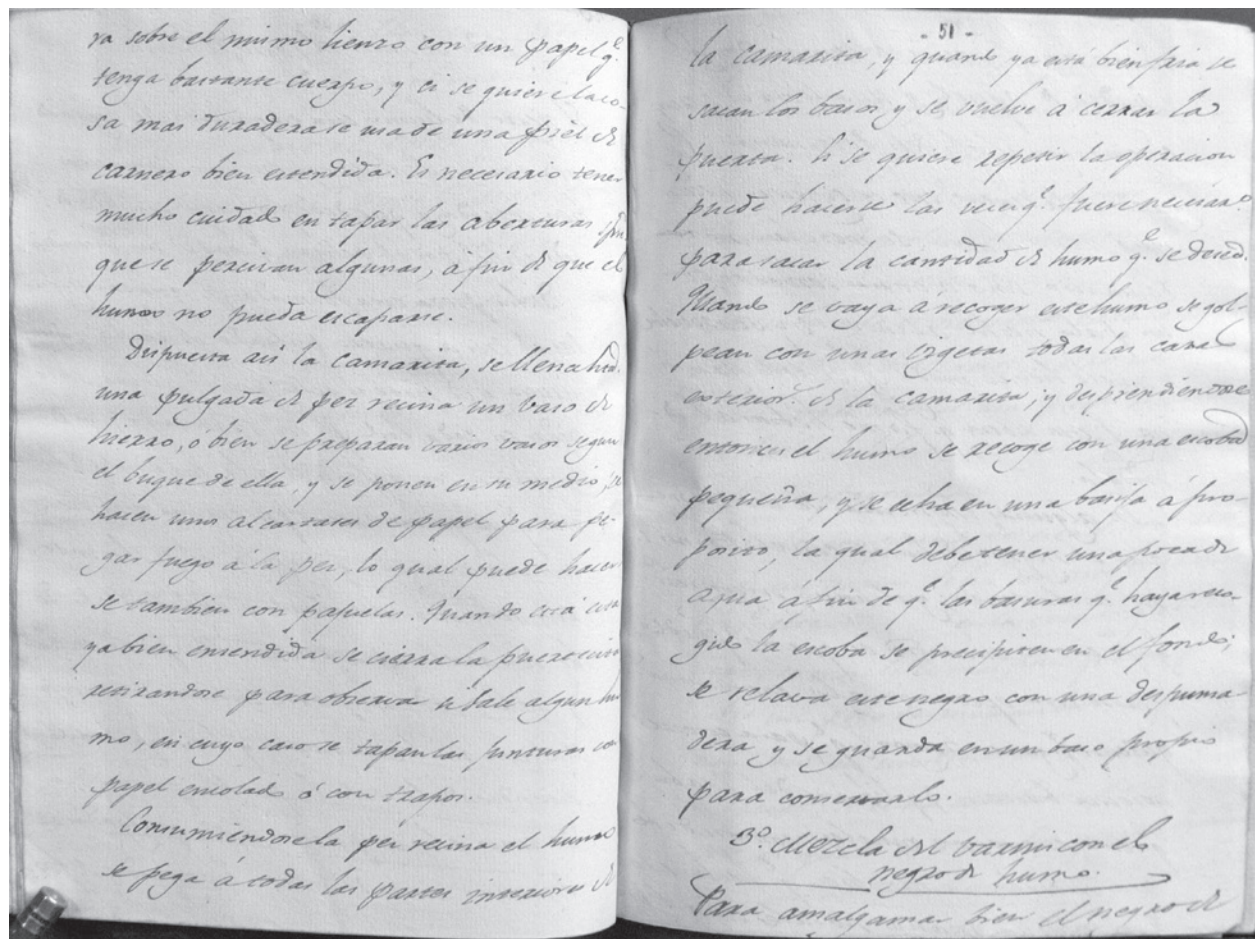 ra sobre el mismo lienzo con un papel q.e
tenga bastante cuerpo, y ci se quiere la co-
sa mas duradera se usa de una piel de
carnero bien estendida. Es necesario tener
mucho cuidado en tapar las aberturas
que se percivan algunas, á fin de que el
humo no pueda escaparse.
Dispuesta asi la camarita, se llena hta.
una pulgada de pez recina un baso de
hierro, ó bien se preparan varios vasos segun
el buque de ella, y se ponen en su medio; se
hacen unos alcartases de papel para pe-
gar fuego á la pez, lo qual puede hacer
se tambien con pajuelas. Quando está esta
ya bien encendida se cierra la puerta
retirandose para observar si sale algun hu
mo, en cuyo caso se tapan las junturas con
papel encolado ó con trapos.
Consumiendose la pez recina el humo
se pega á todas las partes interiores de
- 51 -
la camarita, y quando ya está bien fria se
sacan los basos, y se vuelve á cerrar la
puerta. Si se quiere repetir la operacion
puede hacerse las veces q.e fuere necesar.o
para sacar la cantidad de humo q.e se desea.
Quando se vaya a recoger este humo se gol-
pean con unas vigetas todas las caras
exterior.s de la camarita; y desprendiendose
entonces el humo se recoge con una escoba
pequeña, y se echa en una basija á pro-
posito, la qual debe tener una poca de
agua á fin de q.e las basuras q.e haya reco-
gido la escoba se precipiten en el fondo;
se relava este negro con una despuma
dera, y se guarda en un baso propio
para conservarlo.
3.o Mezcla del barniz con el
negro de humo.
Para amalgamar bien el negro de